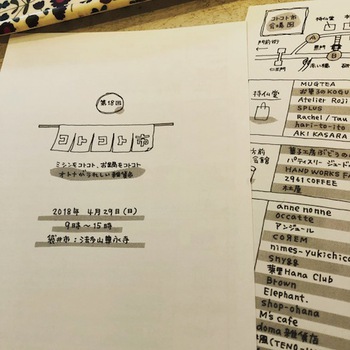 第18回
コトコト市
ミシンもコトコト、お鍋もコトコト
オトナがうれしい雑貨市
2018年 4月29日(日)
9時〜15時
袋井市：法多山尊永寺
コトコト市
会場図
A
B
仁王門
MUGTEA
お菓子のKOGU
Atelier Roji
SPLUS
Rachel / Tau
hari-to-ito
AKI KASARA
パティスリー ジュード
HAND WORKS FA
2961 COFFEE
木工房
anne nonne
occatte
アンジュール
nimes-yukichica
sny豁豁
Hana Club
Brown
Elephant.
shop-ohana
M's cafe
doma雑貨店